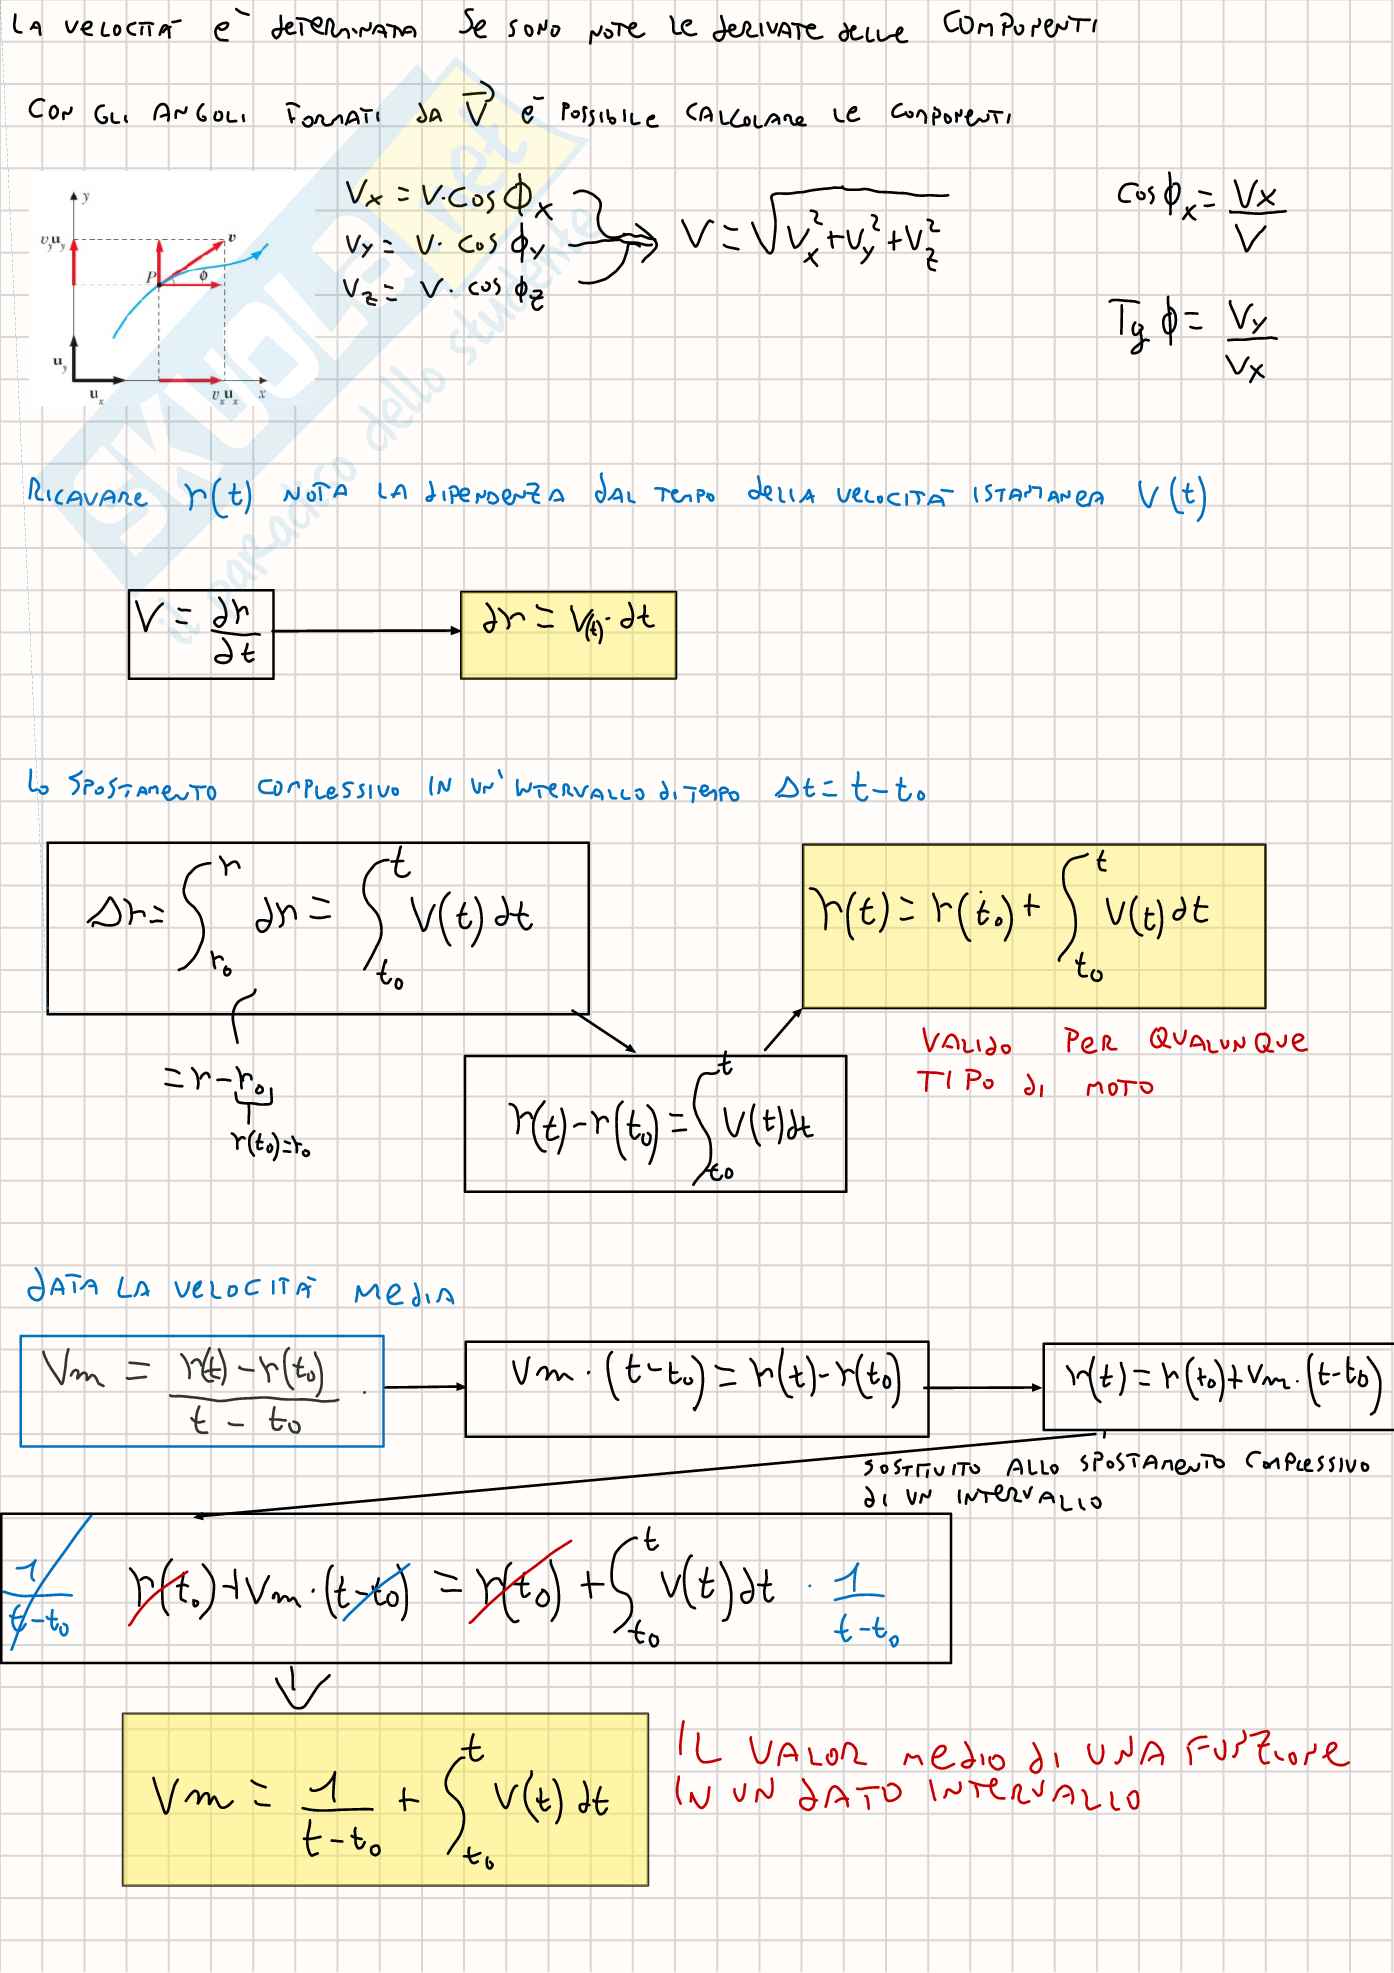 LA VELOCITÀ È DETERMINATA SE SONO NOTE LE DERIVATE DELLE COMPONENTI
CON GLI ANGOLI FORMATI DA V⃗ È POSSIBILE CALCOLARE LE COMPONENTI
Vx = V·cos ϕx
Vy = V·cos ϕy
Vz = V·cos ϕz
V = √(Vx² + Vy² + Vz²)
cos ϕx = Vx / V
Tg ϕ = Vy / Vx
y
vyuy
v
P
ϕ
uy
ux
vxux
x
SKUOLA.net
il paradiso dello studente
RICAVARE r(t) NOTA LA DIPENDENZA DAL TEMPO DELLA VELOCITÀ ISTANTANEA V(t)
V = dr / dt
dr = V(t)·dt
LO SPOSTAMENTO COMPLESSIVO IN UN'INTERVALLO DI TEMPO Δt = t - t₀
Δr = ∫_{r₀}^{r} dr = ∫_{t₀}^{t} V(t) dt
= r - r₀
r(t₀) = r₀
r(t) - r(t₀) = ∫_{t₀}^{t} V(t) dt
r(t) = r(t₀) + ∫_{t₀}^{t} V(t) dt
VALIDO PER QUALUNQUE
TIPO DI MOTO
DATA LA VELOCITÀ MEDIA
Vm = r(t) - r(t₀) / t - t₀
Vm · (t - t₀) = r(t) - r(t₀)
r(t) = r(t₀) + Vm · (t - t₀)
SOSTITUITO ALLO SPOSTAMENTO COMPLESSIVO
DI UN INTERVALLO
1 / t - t₀ r(t₀) + Vm · (t - t₀) = r(t₀) + ∫_{t₀}^{t} V(t) dt · 1 / t - t₀
Vm = 1 / t - t₀ + ∫_{t₀}^{t} V(t) dt
IL VALOR MEDIO DI UNA FUNZIONE
IN UN DATO INTERVALLO